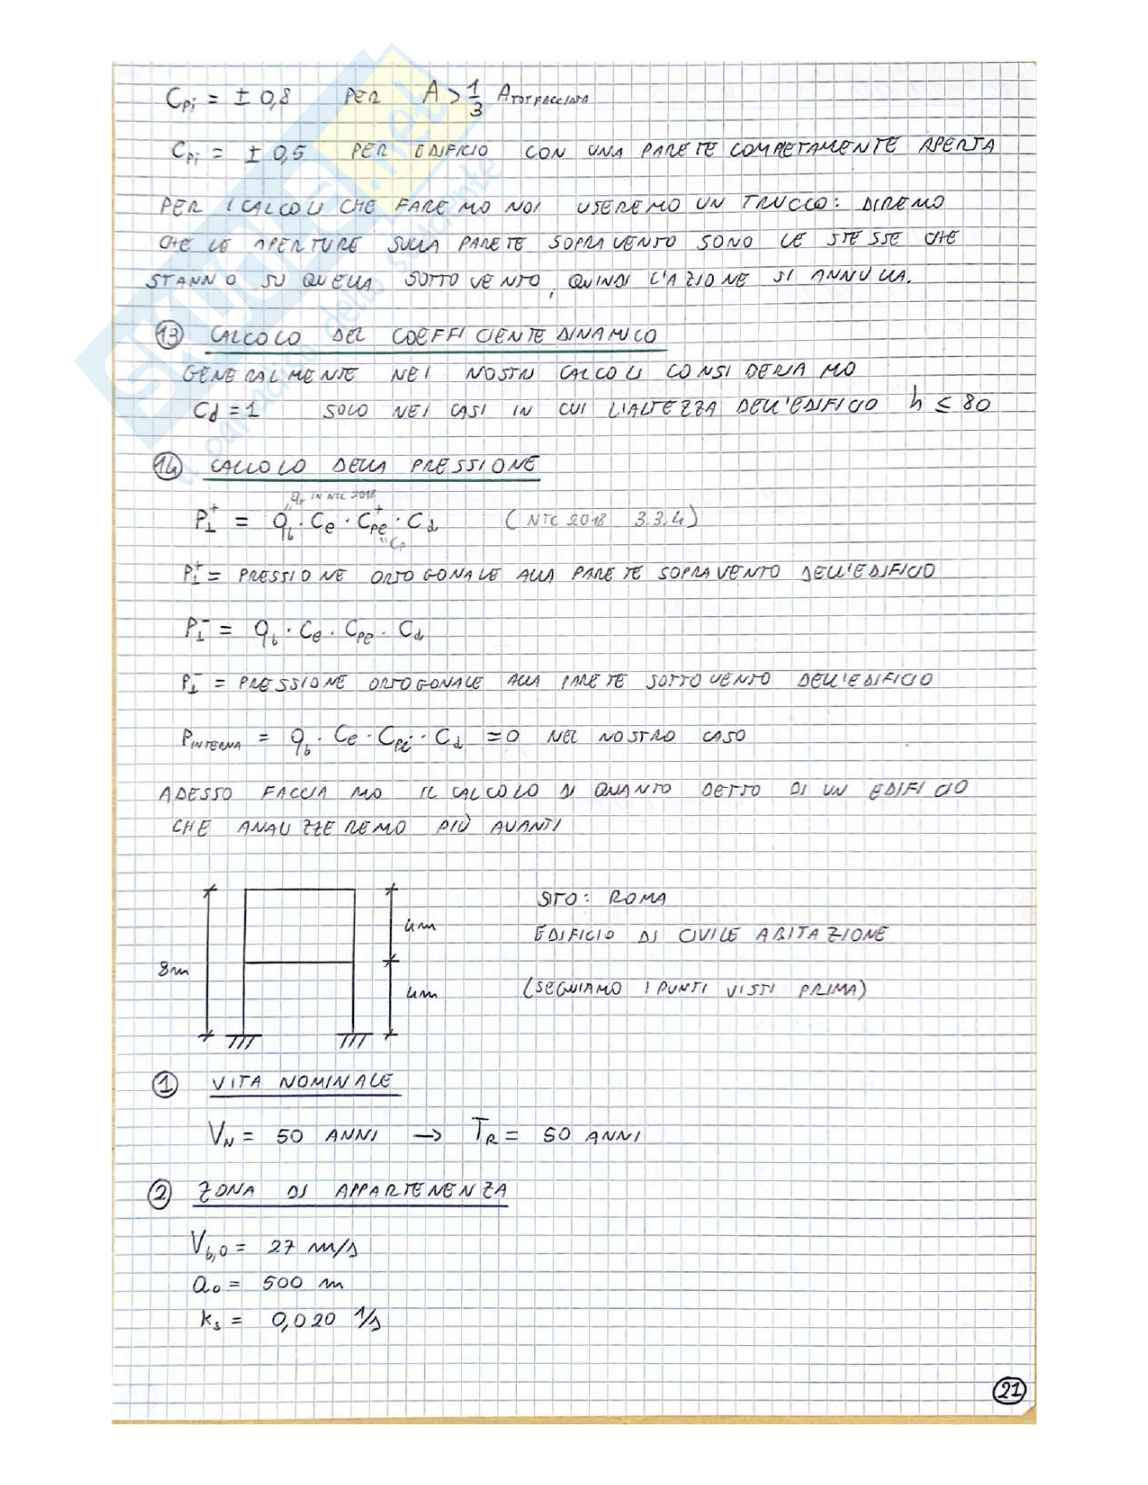 Cpi = ± 0,8 PER A > 1/3 ATOT FACCIATA
Cpi = ± 0,5 PER EDIFICIO CON UNA PARETE COMPLETAMENTE APERTA
PER I CALCOLI CHE FAREMO NOI USEREMO UN TRUCCO: DIREMO
CHE LE APERTURE SULLA PARETE SOPRAVENTO SONO LE STESSE CHE
STANNO SU QUELLA SOTTOVENTO, QUINDI L'AZIONE SI ANNULLA.
13 CALCOLO DEL COEFFICIENTE DINAMICO
GENERALMENTE NEI NOSTRI CALCOLI CONSIDERIAMO
Cd = 1 SOLO NEI CASI IN CUI L'ALTEZZA DELL'EDIFICIO h ≤ 80
14 CALCOLO DELLA PRESSIONE
"qr IN NTC 2018
P⊥+ = qb · Ce · Cpe+ · Cd (NTC 2018 3.3.4)
"Cp
P⊥+ = PRESSIONE ORTOGONALE ALLA PARETE SOPRAVENTO DELL'EDIFICIO
P⊥- = qb · Ce · Cpe · Cd
P⊥- = PRESSIONE ORTOGONALE ALLA PARETE SOTTOVENTO DELL'EDIFICIO
PINTERNA = qb · Ce · Cpi · Cd = 0 NEL NOSTRO CASO
ADESSO FACCIAMO IL CALCOLO DI QUANTO DETTO DI UN EDIFICIO
CHE ANALIZZEREMO PIÙ AVANTI
8m
4m
4m
SITO: ROMA
EDIFICIO DI CIVILE ABITAZIONE
(SEGUIAMO I PUNTI VISTI PRIMA)
1 VITA NOMINALE
VN = 50 ANNI → TR = 50 ANNI
2 ZONA DI APPARTENENZA
Vb,0 = 27 m/s
a0 = 500 m
ks = 0,020 1/s
21